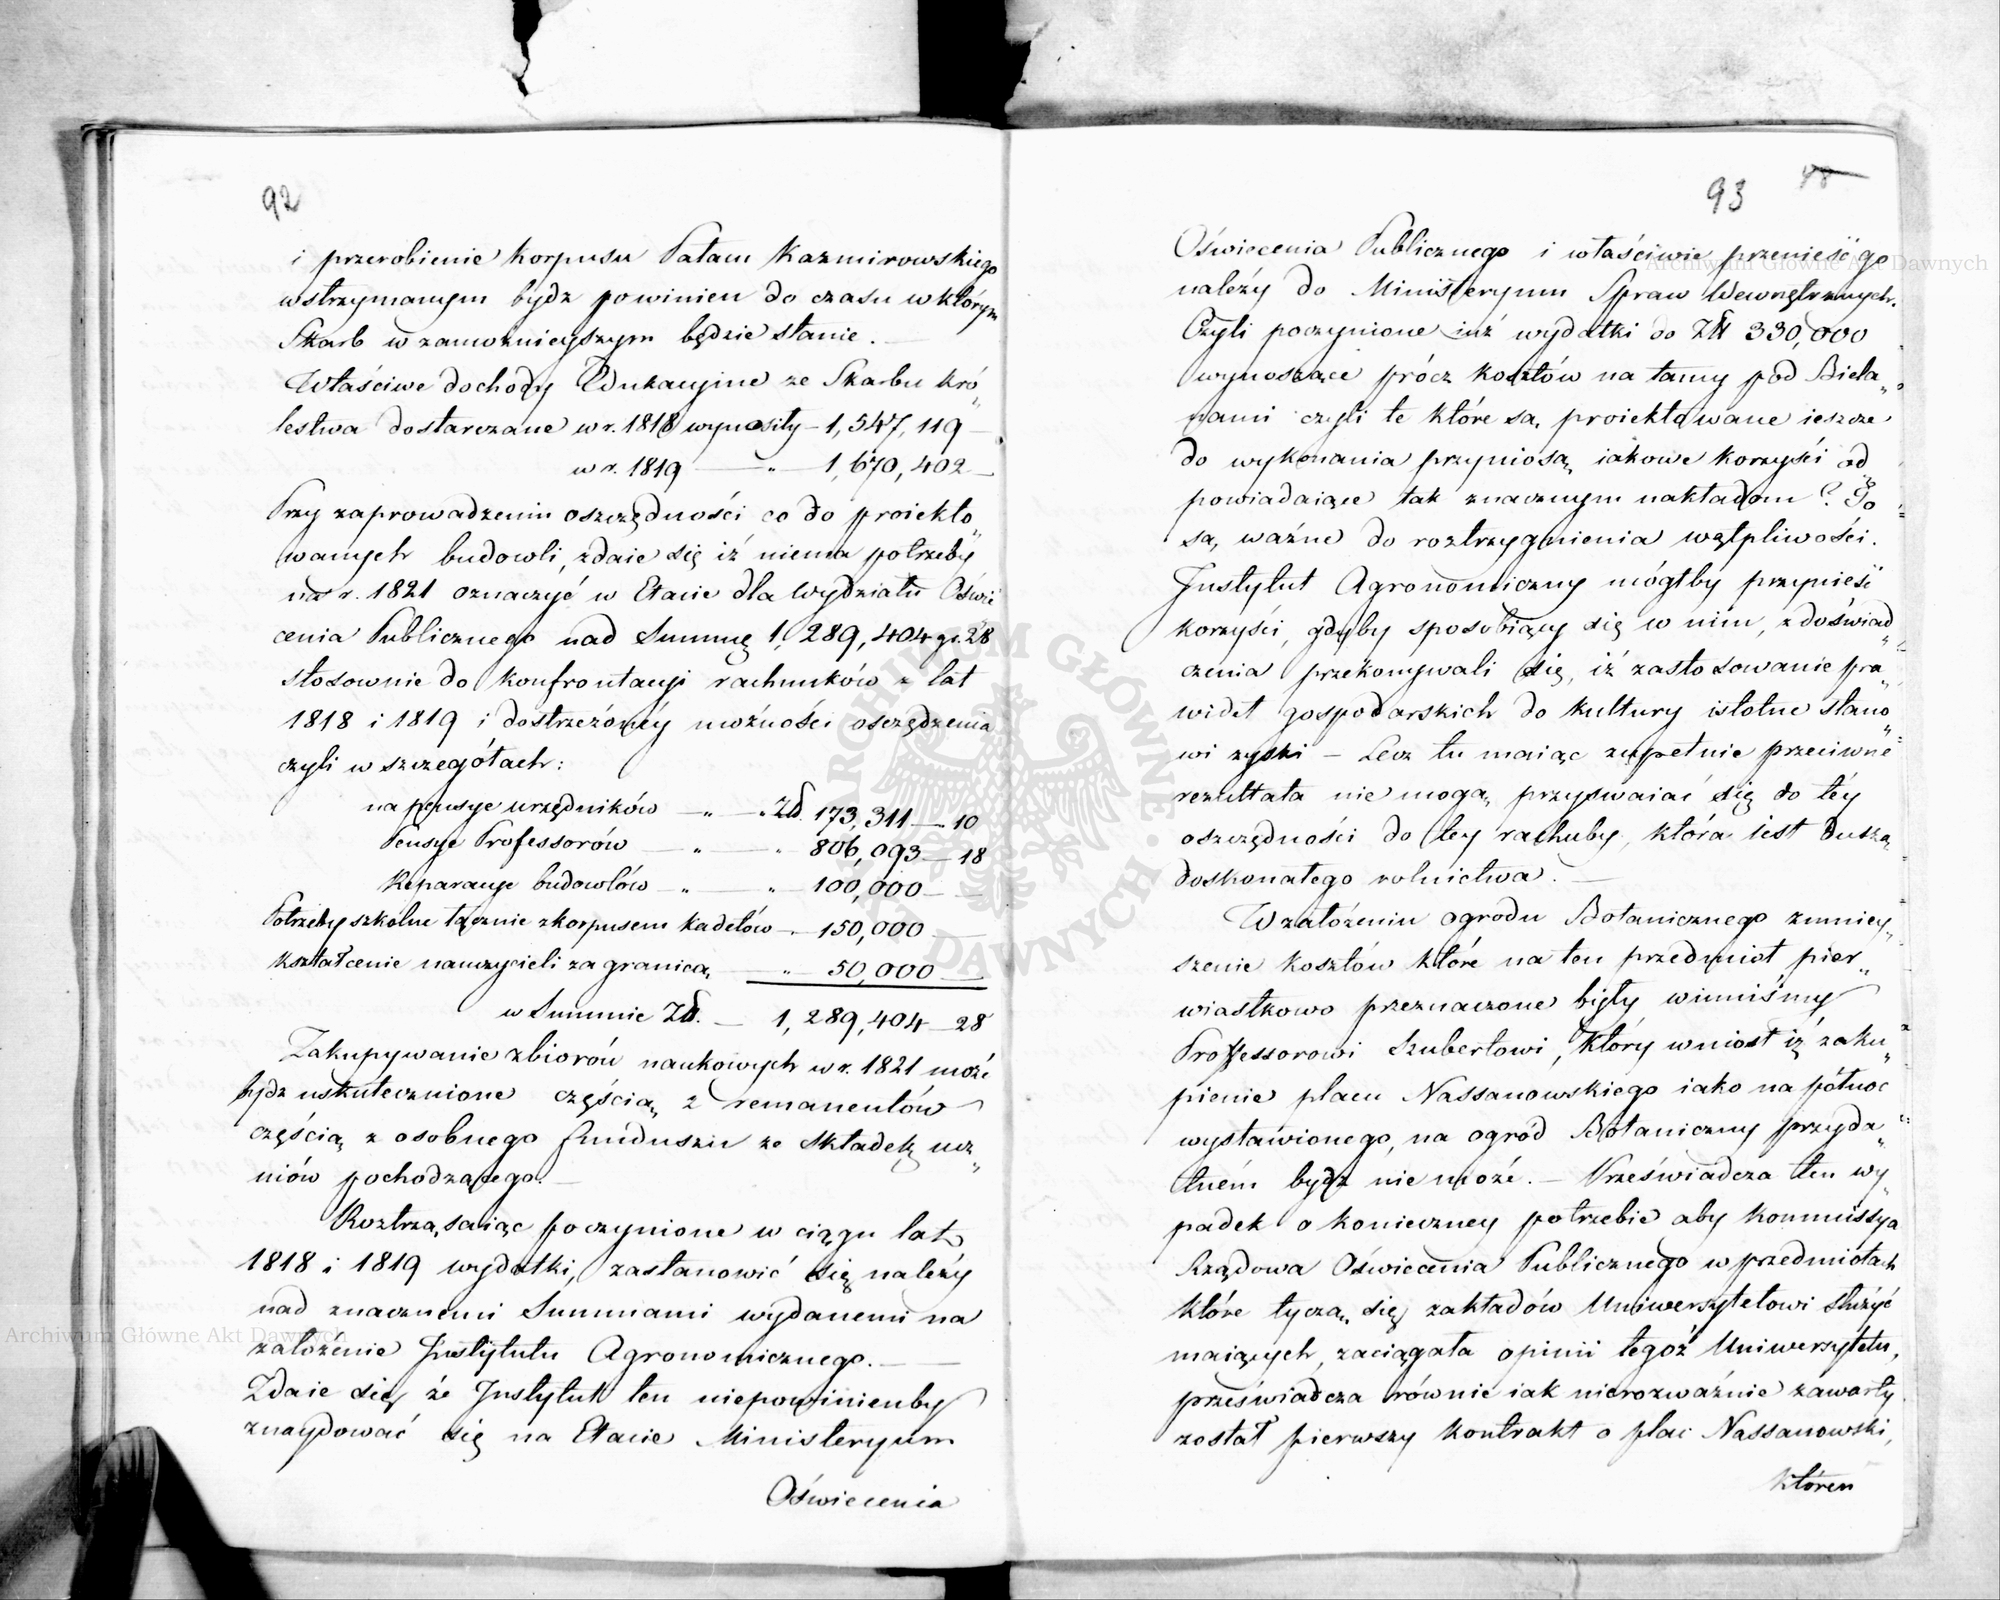 92
i przerobienie korpusu Pałacu Kazmirowskiego
wstrzymanym bydz powinien do czasu w którym
Skarb w zamożnieyszym będzie stanie. —
Właściwe dochody Edukacyjne ze Skarbu Kró„
lestwa dostarczane w r. 1818 wynosiły — 1,547,119 —
w r. 1819 — „ — 1,670,402 —
Przy zaprowadzeniu oszczędności co do proiekto„
wanych budowli, zdaie się iż niema potrzeby
na r. 1821 oznaczyć w Etacie dla Wydziału Oświe
cenia Publicznego nad Summę 1,289,404 gr. 28
stosownie do konfrontacyi rachunków z lat
1818 i 1819 i dostrzeżonéy możności osczędzenia
czyli w szczegółach:
na pensye urzędników — „ — „ Zł. 173,311 — 10
Pensye Professorów — „ — „ 806,093 — 18
Reparacye budowlów — „ — „ — 100,000 —
Potrzeby szkolne łącznie z korpusem kadetów — . — 150,000 —
Kształcenie nauczycieli za granicą — „ — 50,000 —
w Summie Zł. — 1,289,404 — 28
Zakupywanie zbiorów naukowych w r. 1821 może
bydz uskutecznione częścią z remanentów
częścią z osobnego funduszu ze składek ucz„
niów pochodzącego. —
Roztrząsaiąc poczynione w ciągu lat
1818 i 1819 wydatki, zastanowić się należy
nad znacznemi Summami wydanemi na
założenie Instytutu Agronomicznego. —
Zdaie się że Instytut ten niepowinienby
znaydować się na Etacie Ministeryum
Oświecenia
93
48
Oświecenia Publicznego i właściwie przenieść go
należy do Ministeryum Spraw Wewnętrznych.
Czyli poczynione iuż wydatki do Zł 330,000
wynoszące prócz kosztów na tamy pod Biela„
nami czyli te które są proiektowane ieszcze
do wykonania przyniosą iakowe korzyści od
powiadaiące tak znacznym nakładom? To
są ważne do roztrzygnienia wątpliwości.
Instytut Agronomiczny mógłby przynieść
korzyści, gdyby sposobiący się w nim, z doświad„
czenia przekonywali się, iż zastosowanie pra„
wideł gospodarskich do kultury istotne stano„
wi zyski — Lecz tu maiąc zupełnie przeciwne
rezultata nie mogą przyswaiać się do téy
oszczędności do tey rachuby, która iest duszą
doskonałego rolnictwa. —
W założeniu ogrodu Botanicznego zmniey„
szenie kosztów które na ten przedmiot pier„
wiastkowo przeznaczone były winniśmy
Professorowi Szubertowi, który wniosł iż zaku„
pienie placu Nassanowskiego iako na północ
wystawionego, na ogród Botaniczny przyda„
tném bydz nie może. — Przeświadcza ten wy„
padek o konieczney potrzebie aby Kommissya
Rządowa Oświecenia Publicznego w przedmiotach
które tyczą się zakładów Uniwersytetowi służyć
maiących, zaciągała opinii tegoż Uniwersytetu,
przeświadcza równie iak nierozważnie zawarty
został pierwszy kontrakt o plac Nassanowski,
któren
Archiwum Główne Akt Dawnych
Archiwum Główne Akt Dawnych
ARCHIWUM GŁÓWNE AKT DAWNYCH